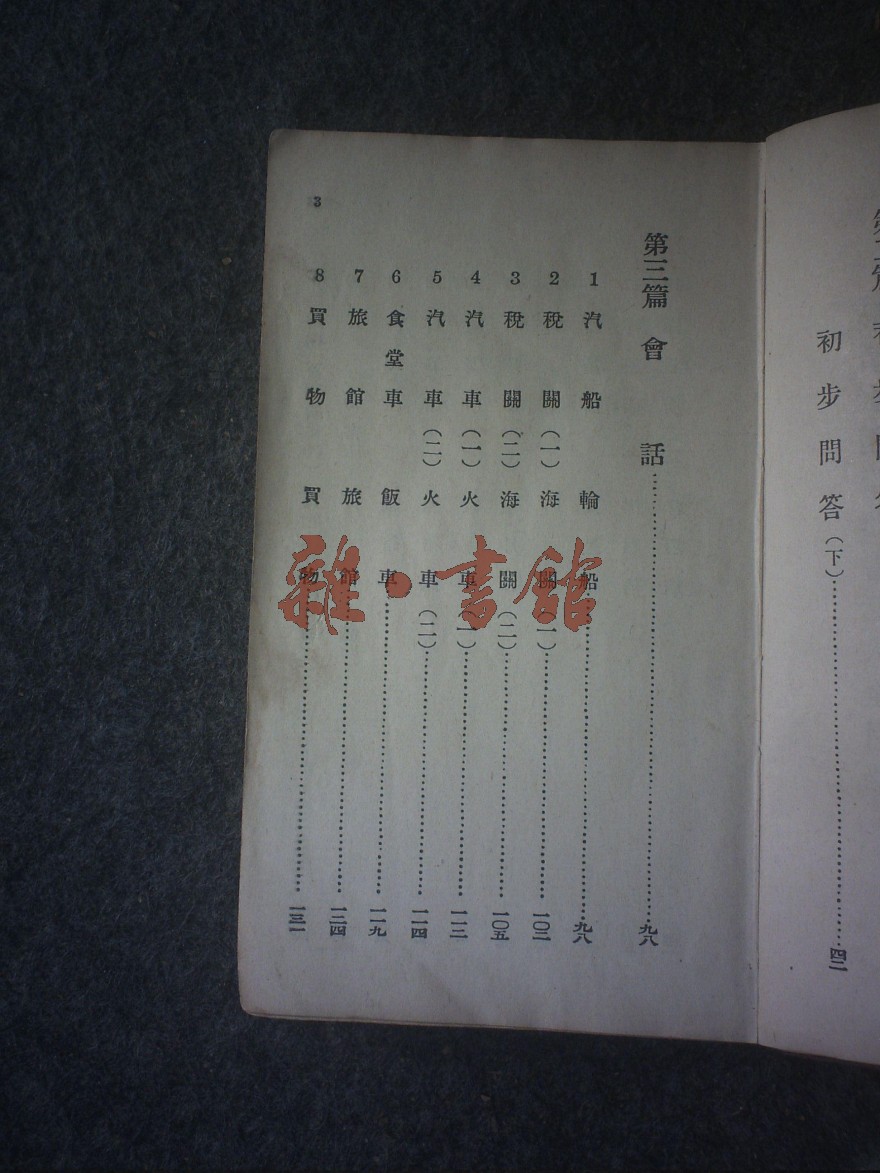 初步問答(下)……四二
第三篇 會話……九八
1 汽船 輪船……九八
2 稅關(一) 海關(一)……一〇二
3 稅關(二) 海關(二)……一〇五
4 汽車(一) 火車(一)……一一二
5 汽車(二) 火車(二)……一一四
6 食堂車 飯車……一一九
7 旅館 旅館……一二四
8 買物 買物……一三一
3
雜·書館